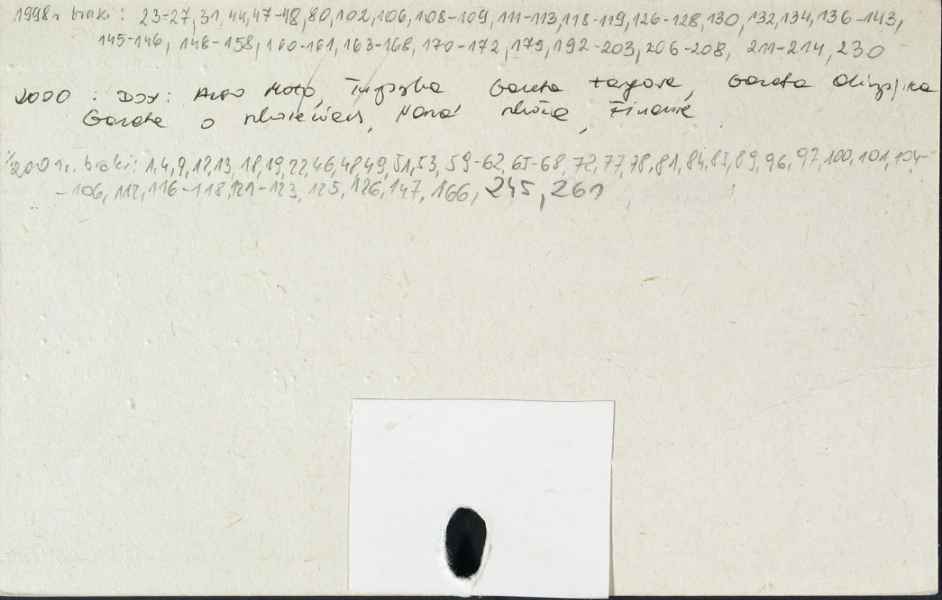 1998r braki: 23-27, 31, 44, 47-48, 80, 102, 106, 108-109, 111-113, 118-119, 126-128, 130, 132, 134, 136-143,
145-146, 148-158, 160-161, 163-168, 170-172, 179, 192-203, 206-208, 211-214, 230
2000: Auto Moto, Gazeta Targowa, Gazeta Olimpijska
Gazeta o, Finanse
2001r. braki: 1, 4, 9, 12, 13, 18, 19, 22, 46, 48, 49, 51, 53, 59-62, 65-68, 72, 77, 78, 81, 84, 87, 89, 96, 97, 100, 101, 104-
-106, 112, 116-118, 121-123, 125, 126, 147, 166, 245, 261